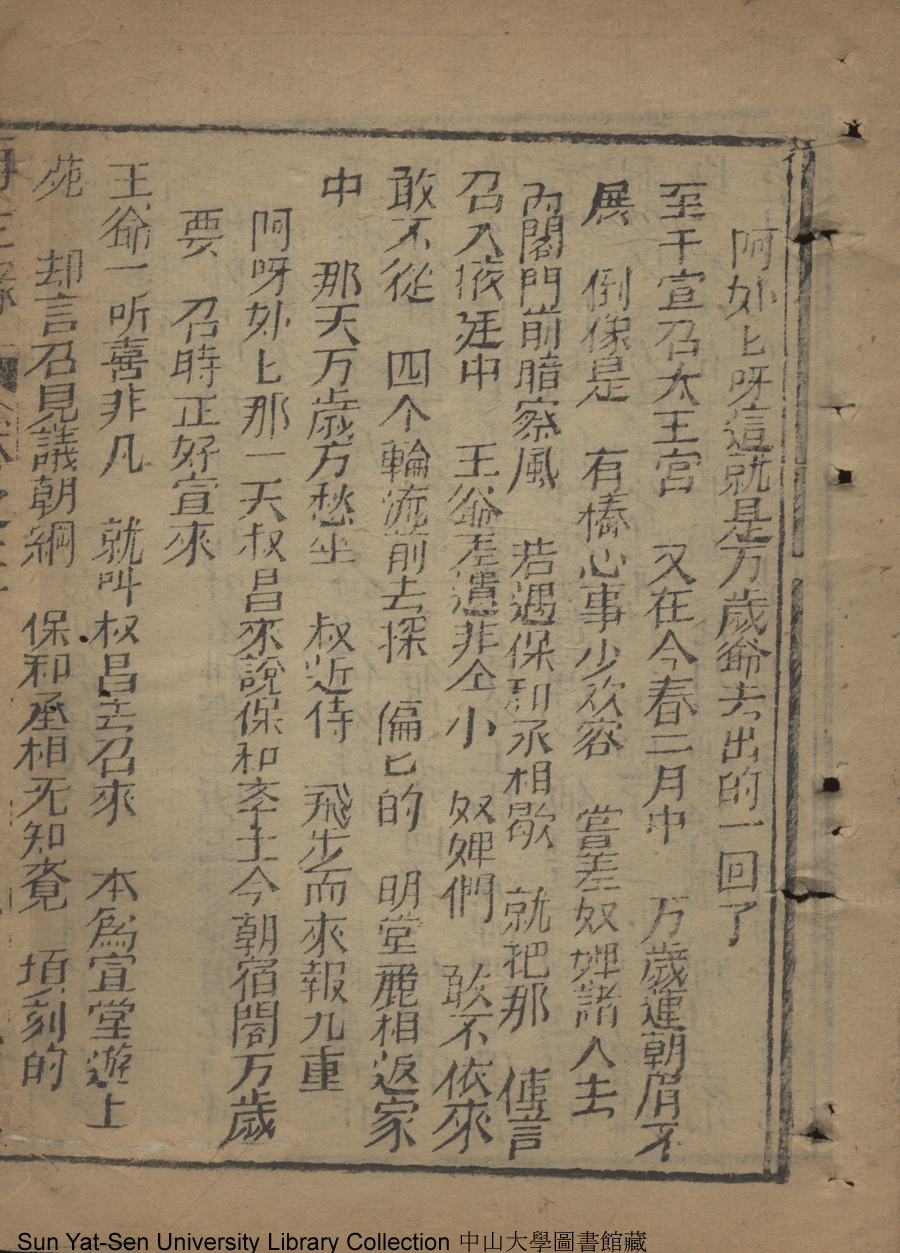 阿妙匕呀這就是万歲爺去出的一回了
至于宣召太王宮　又在今春二月中　万歲連朝眉不
展　倒像是　有樁心事少欢容　嘗差奴婢諸人去
內閣門前暗察風　若遇保和丞相歇　就把那　傳言
召入掖廷中　王爺差遣非仝小　奴婢們　敢不依來
敢不從　四个輪流前去探　偏匕的　明堂麗相返家
中　那天万歲方愁坐　叔近侍　飛步而來報九重
阿呀妙匕那一天叔昌來說保和李主今朝宿閣万歲
要　召時正好宣來
王爺一听喜非凡　就叫叔昌去召來　本爲宜堂遊上
苑　却言召見議朝綱　保和丞相无知覺　頃刻的
Sun Yat-Sen University Library Collection 中山大學圖書館藏